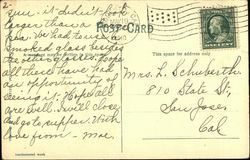 2-
Sun. it didn't look
larger than a
pea. We had to use a
smoked glass besides
the other glasses. Hope
all there have had
an opportunity of
seeing it. Hope all
are well. Will close
and go to supper. With
love from - Mae.
POST CARD
This space for address only
Mrs. L. Schuberth
810 State St,
San Jose
Cal